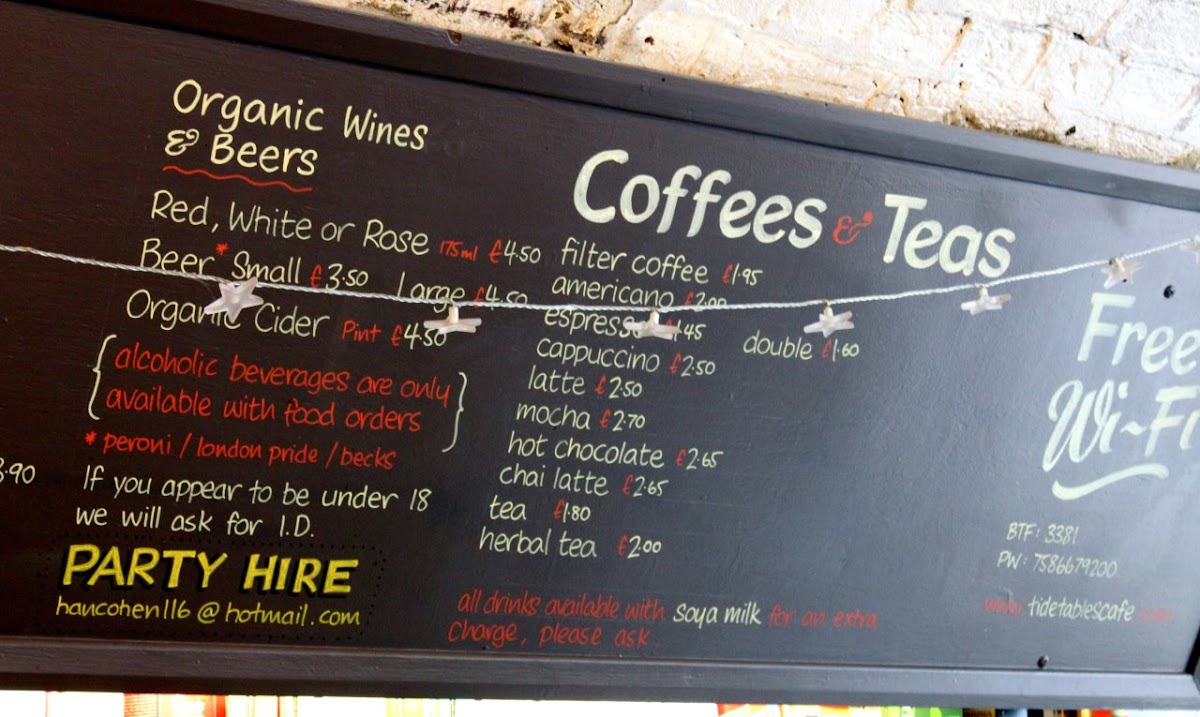 Organic Wines
& Beers
Red, White or Rose 175ml £4.50
Beer * Small £3.50 Large £4.50
Organic Cider Pint £4.50
{ alcoholic beverages are only
available with food orders }
* peroni / london pride / becks
3.90
If you appear to be under 18
we will ask for I.D.
PARTY HIRE
hancohen116@hotmail.com
Coffees & Teas
filter coffee £1.95
americano £2.00
espresso £1.45 double £1.60
cappuccino £2.50
latte £2.50
mocha £2.70
hot chocolate £2.65
chai latte £2.65
tea £1.80
herbal tea £2.00
all drinks available with soya milk for an extra
charge, please ask.
Free
Wi-Fi
BTF: 3381
PW: 7586679200
www.tidetablescafe.com